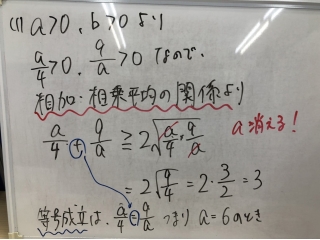 (1) a>0, b>0 より
a/4>0, 9/a>0 なので、
相加・相乗平均の関係より
a/4 + 9/a ≧ 2√(a/4・9/a) a 消える!
= 2√(9/4) = 2・3/2 = 3
等号成立は、a/4 = 9/a つまり a=6 のとき